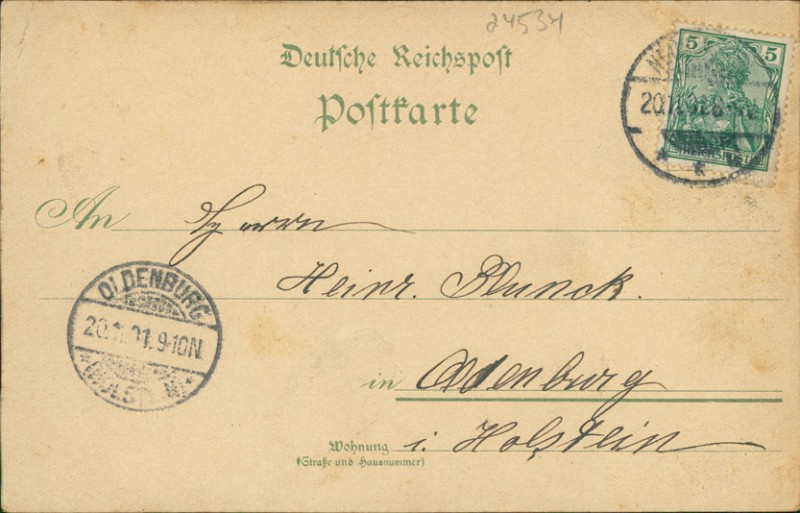 24534
Deutsche Reichspost
Postkarte
5 5
20.11.01.8-
An Herrn
Heinr. Blunck.
OLDENBURG
20.11.01.9-10N.
in Oldenburg
Wohnung i. Holstein
(Straße und Hausnummer)